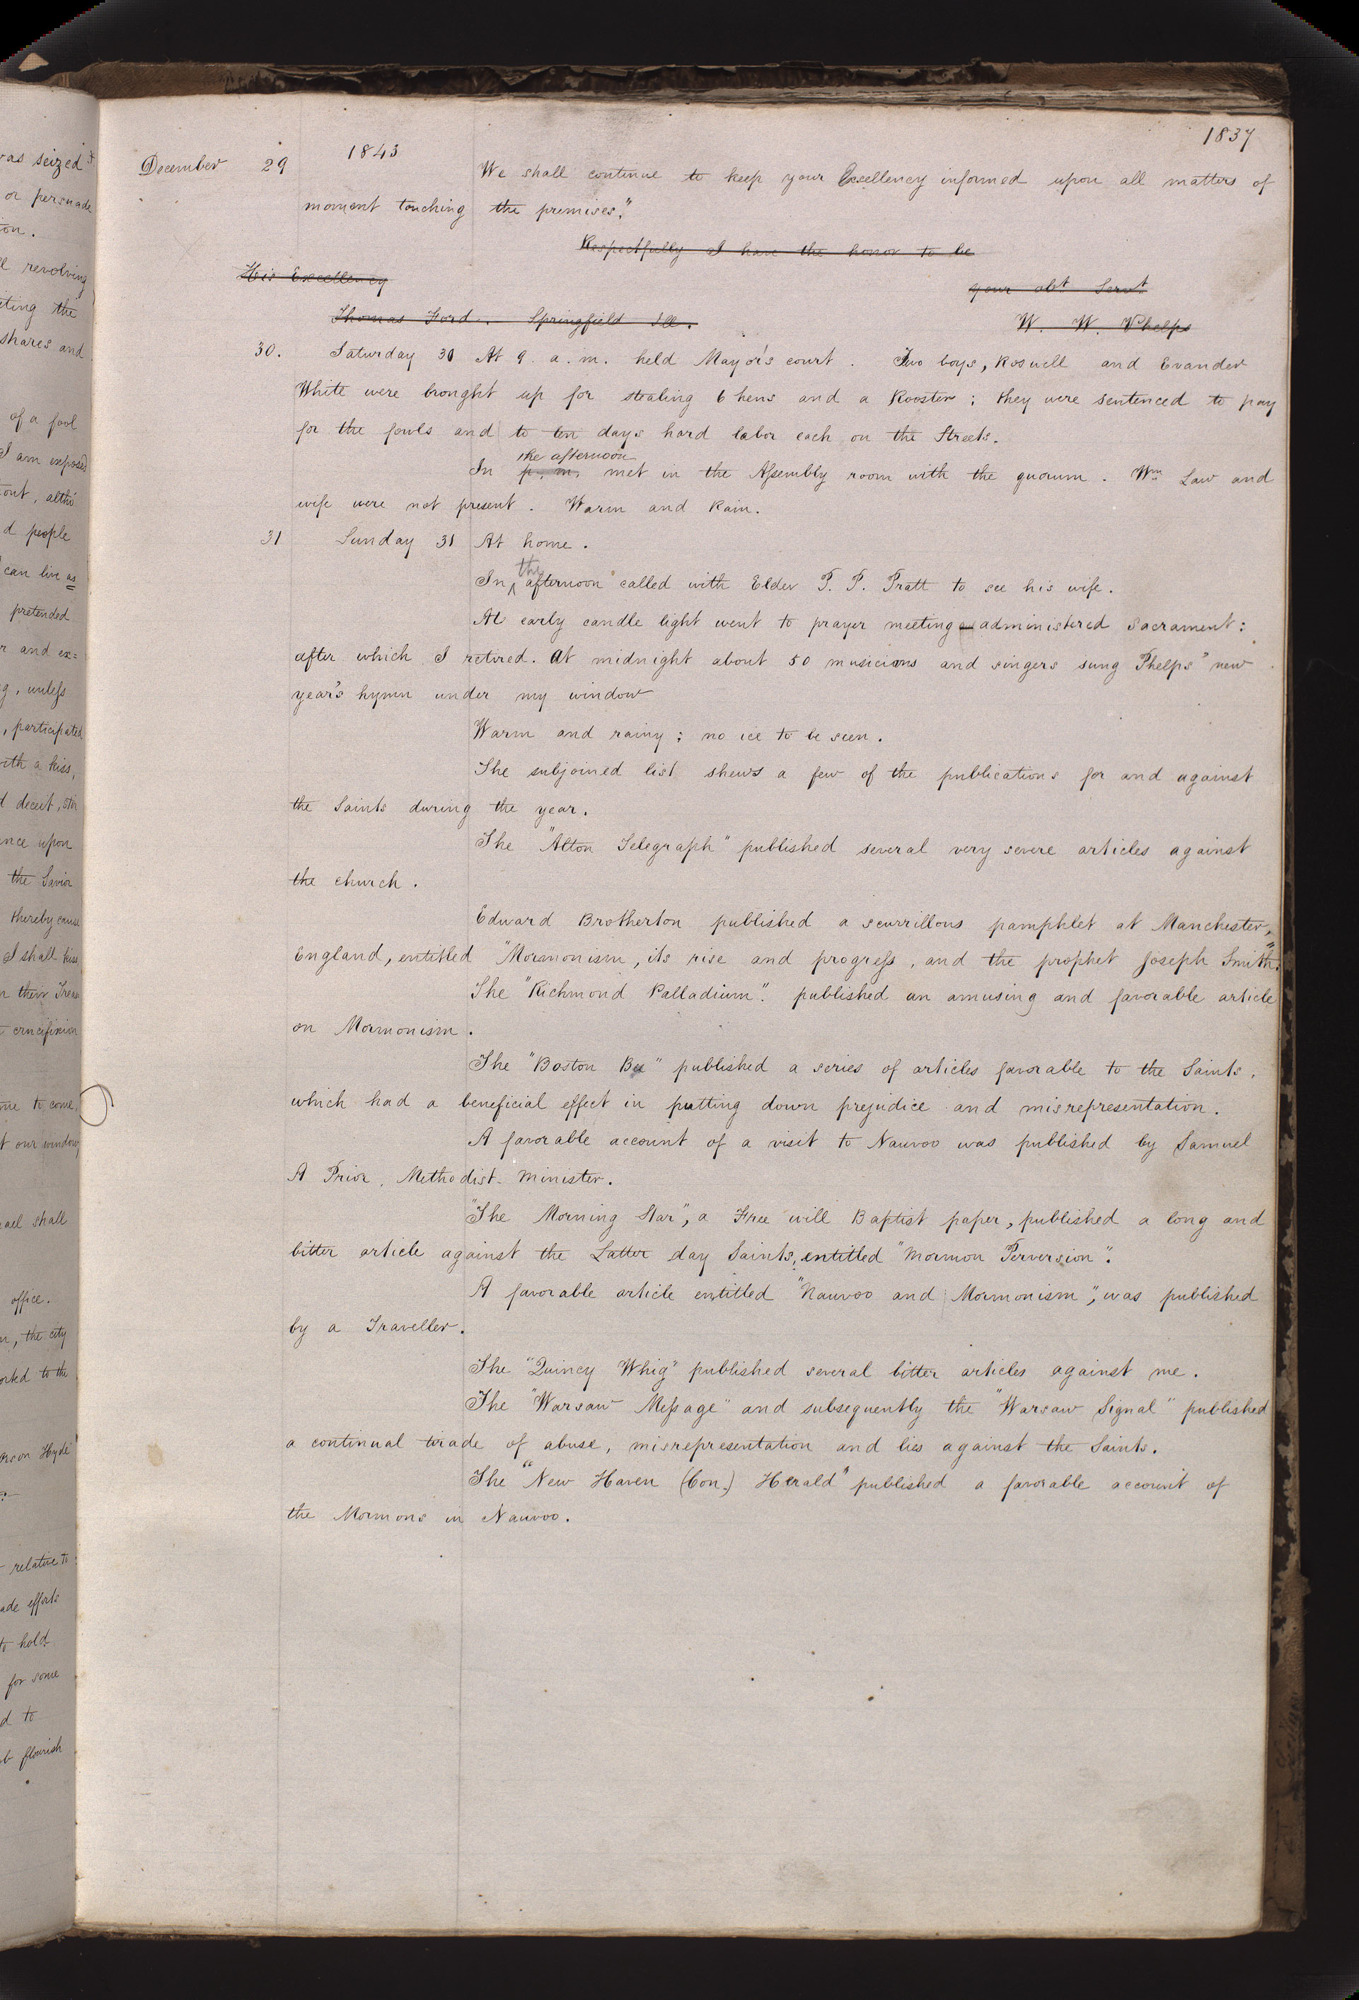 1837
December 29 1843 We shall continue to keep your Excellency informed upon all matters of
moment touching the premises."
Respectfully I have the honor to be
His Excellency your obt Servt
Thomas Ford. Springfield Ill. W. W. Phelps
30. Saturday 30 At 9. a.m. held Mayor's court. Two boys, Roswell and Evander
White were brought up for stealing 6 hens and a Rooster; they were sentenced to pay
for the fowls and to ten days hard labor each on the Streets.
the afternoon
In p. m. met in the Assembly room with the quorum. Wm Law and
wife were not present. Warm and Rain.
31 Sunday 31 At home.
the
In ^ afternoon called with Elder P. P. Pratt to see his wife.
At early candle light went to prayer meeting — administered sacrament:
after which I retired. At midnight about 50 musicions and singers sung Phelps' new
year's hymn under my window
Warm and rainy; no ice to be seen.
The subjoined list shews a few of the publications for and against
the Saints during the year.
The "Alton Telegraph" published several very severe articles against
the church.
Edward Brotherton published a scurrillous pamphlet at Manchester,
England, entitled "Mormonism, its rise and progress, and the prophet Joseph Smith."
The "Richmond Palladium". published an amusing and favorable article
on Mormonism.
The "Boston Bee" published a series of articles favorable to the Saints,
which had a beneficial effect in putting down prejudice and misrepresentation.
A favorable account of a visit to Nauvoo was published by Samuel
A Prior, Methodist minister.
"The Morning Star", a Free will Baptist paper, published a long and
bitter article against the Latter day Saints, entitled "Mormon Perversion".
A favorable article entitled "Nauvoo and Mormonism", was published
by a Traveller.
The "Quincy Whig" published several bitter articles against me.
The "Warsaw Message" and subsequently the "Warsaw Signal" published
a continual tirade of abuse, misrepresentation and lies against the Saints.
The "New Haven (Con.) Herald" published a favorable account of
the Mormons in Nauvoo.
was seized
or persuade
revolving
the
shares and
of a fool
I am exposed
out, altho'
d people
can live as
pretended
r and ex=
, unless
, participated
with a kiss,
deceit,
upon
the Savior
thereby cause
I shall kiss
crucifixion
to come,
our window
shall
office.
, the city
to the
Hyde
relative to
efforts
to hold
for some
to
flourish